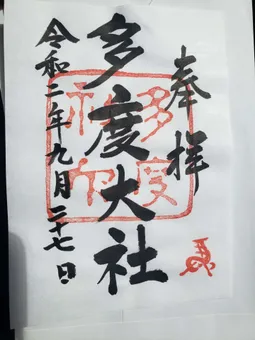 奉拝
多度大社
令和二年九月二十七日
多度